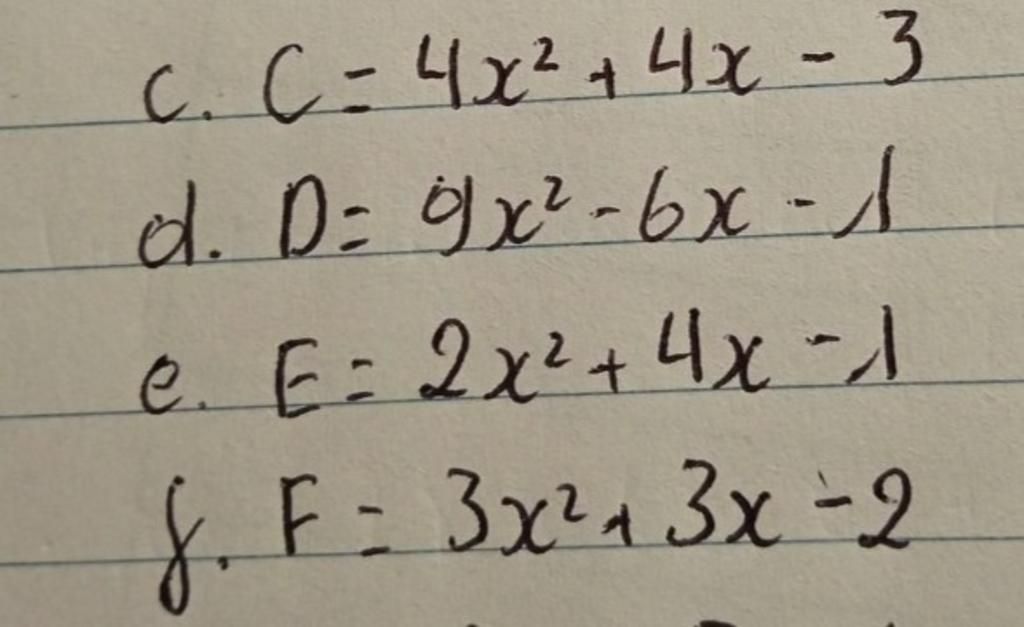 c. C = 4x² + 4x - 3
d. D = 9x² - 6x - 1
e. E = 2x² + 4x - 1
f. F = 3x² + 3x - 2